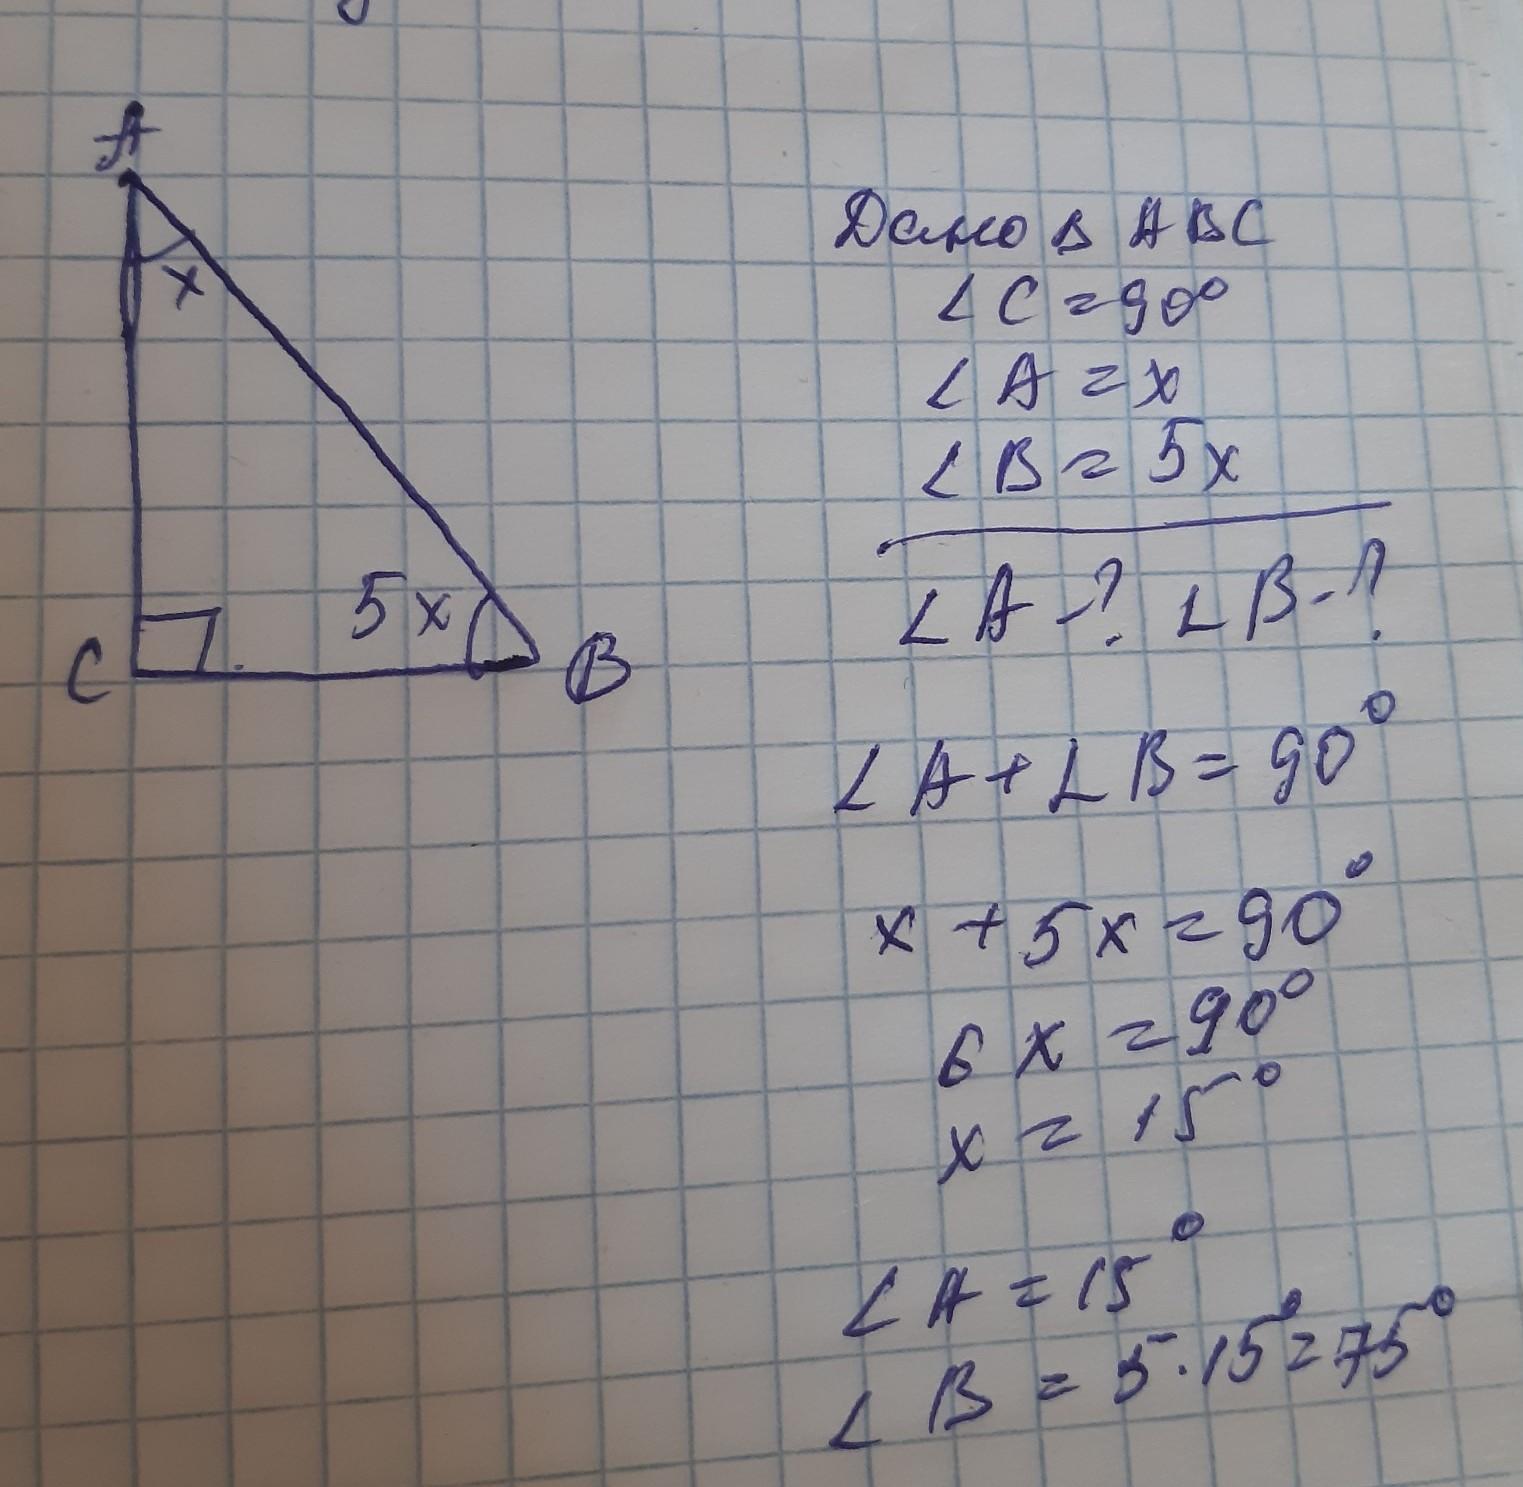 A
x
5x
C
B
Дано Δ ABC
∠C=90°
∠A=x
∠B=5x
∠A-? ∠B-?
∠A+∠B=90°
x+5x=90°
6x=90°
x=15°
∠A=15°
∠B=5·15°=75°